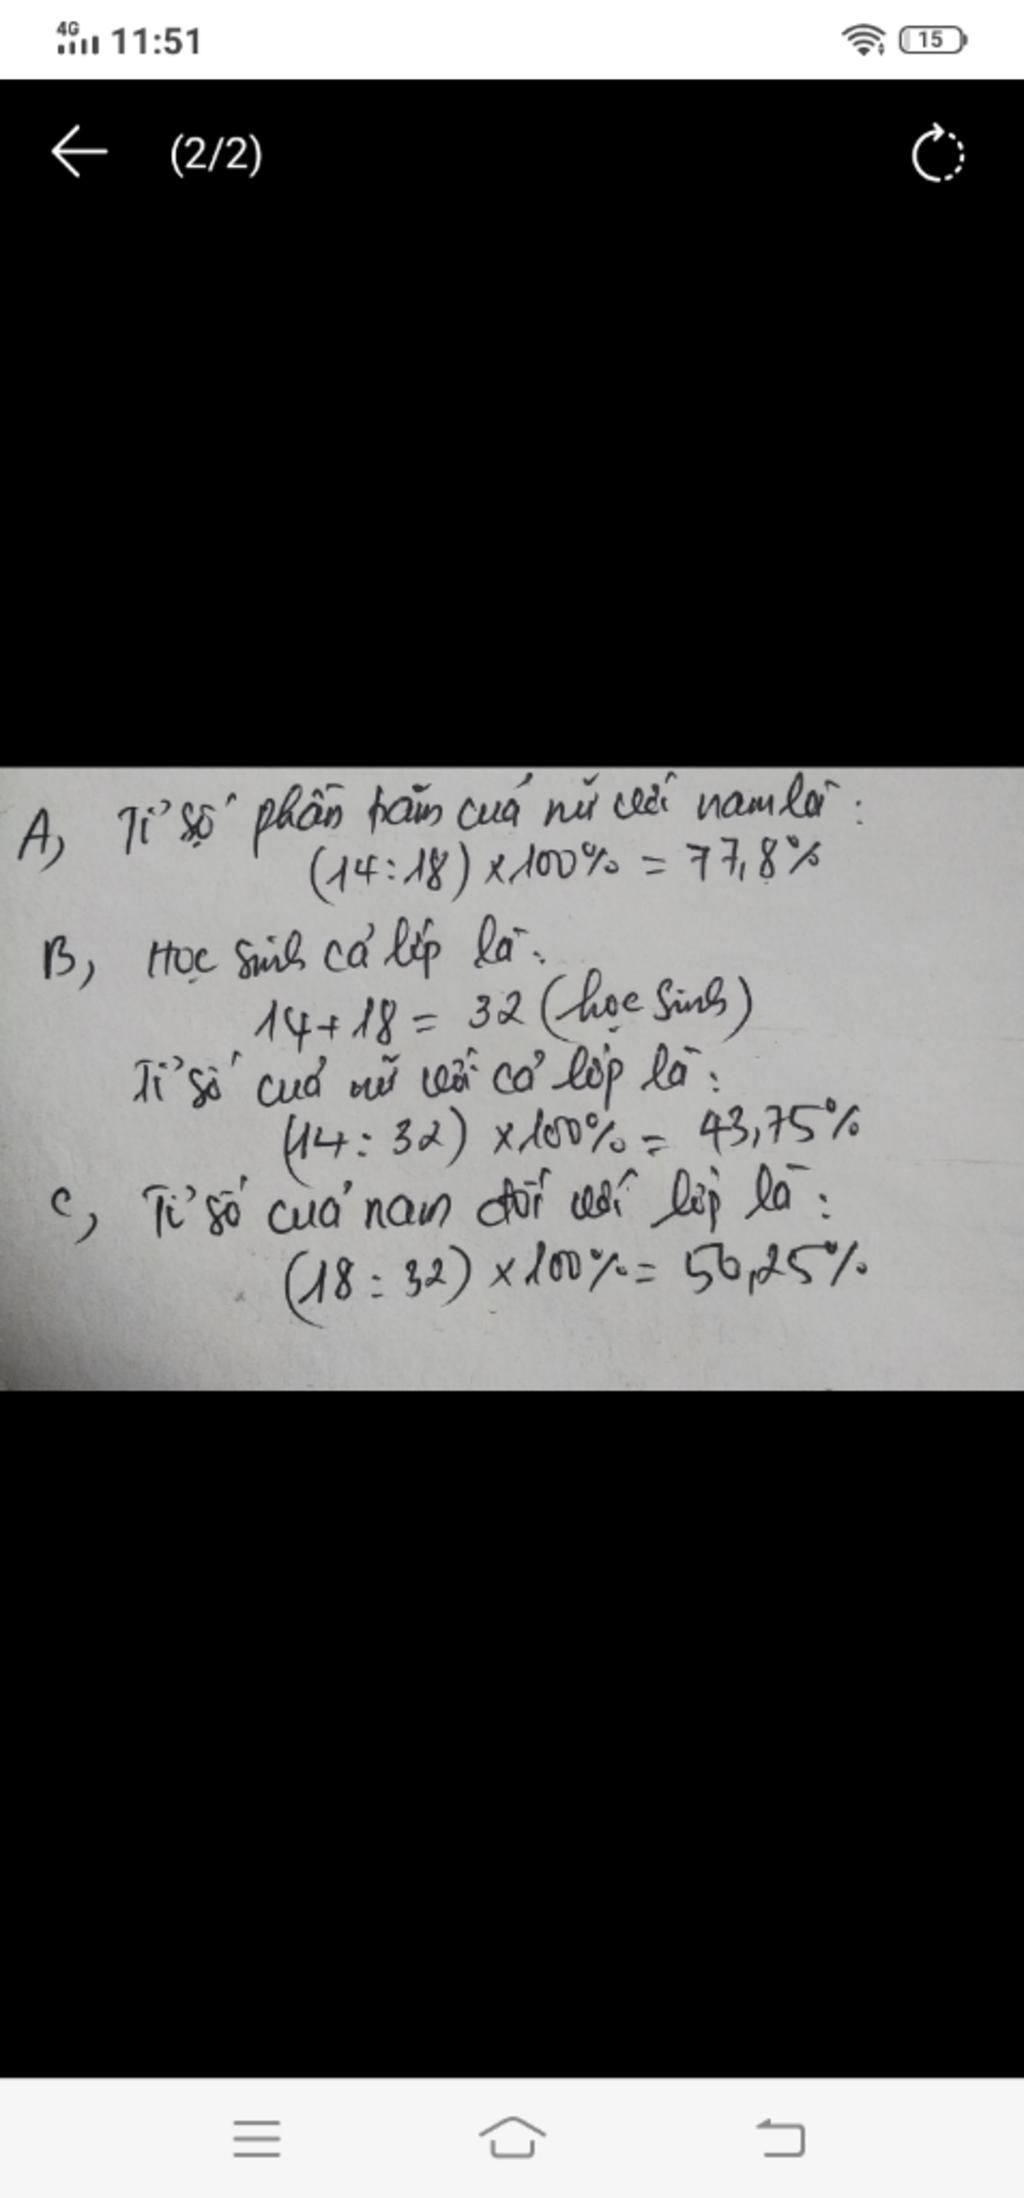 4G 11:51 15
(2/2)
A, Tỉ số phần trăm của nữ với nam là:
(14:18) x 100% = 77,8%
B, Học sinh cả lớp là:
14+18 = 32 (học sinh)
Tỉ số của nữ với cả lớp là:
(14:32) x 100% = 43,75%
C, Tỉ số của nam đối với lớp là:
(18:32) x 100% = 56,25%